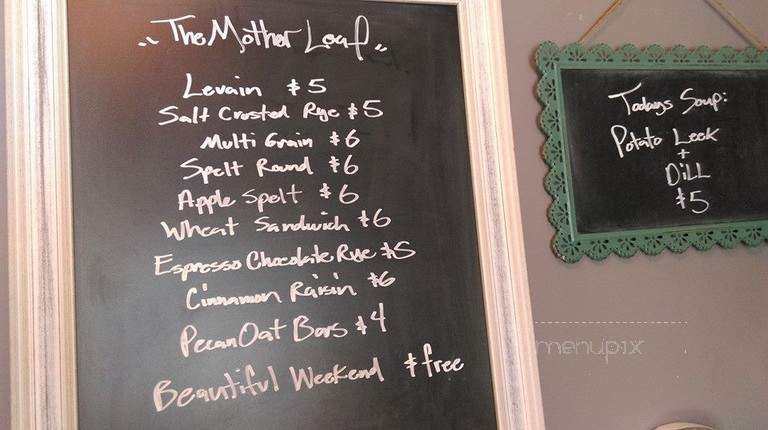 "The Mother Loaf"
Levain $5
Salt Crusted Rye $5
Multi Grain $6
Spelt Round $6
Apple Spelt $6
Wheat Sandwich $6
Espresso Chocolate Rye $5
Cinnamon Raisin $6
Pecan Oat Bars $4
Beautiful Weekend $free
Todays Soup:
Potato Leek
+
DiLL
$5
menupix